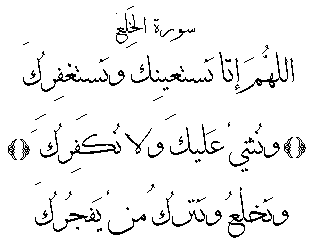 سورة الخلع
اللهُمَ إنّا نَستعينِك ونَستغفِركَ
ونُثنيُ عَليكَ وَلا نُكفَرِكُ
وَنَخلعُ ونَتركُ مُن يُفجُركُ